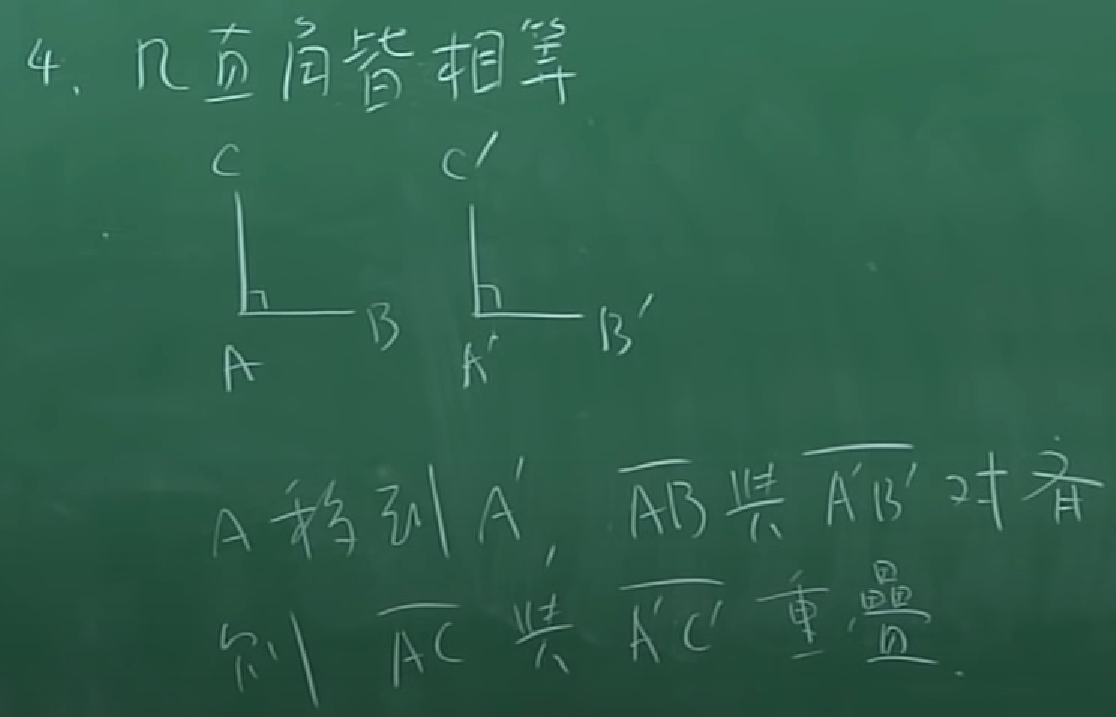 4. 凡直角皆相等
C C′
B B′
A A′
A 移到 A′, A̅B̅ 與 A̅′B̅′ 对齐
则 A̅C̅ 與 A̅′C̅′ 重疊.